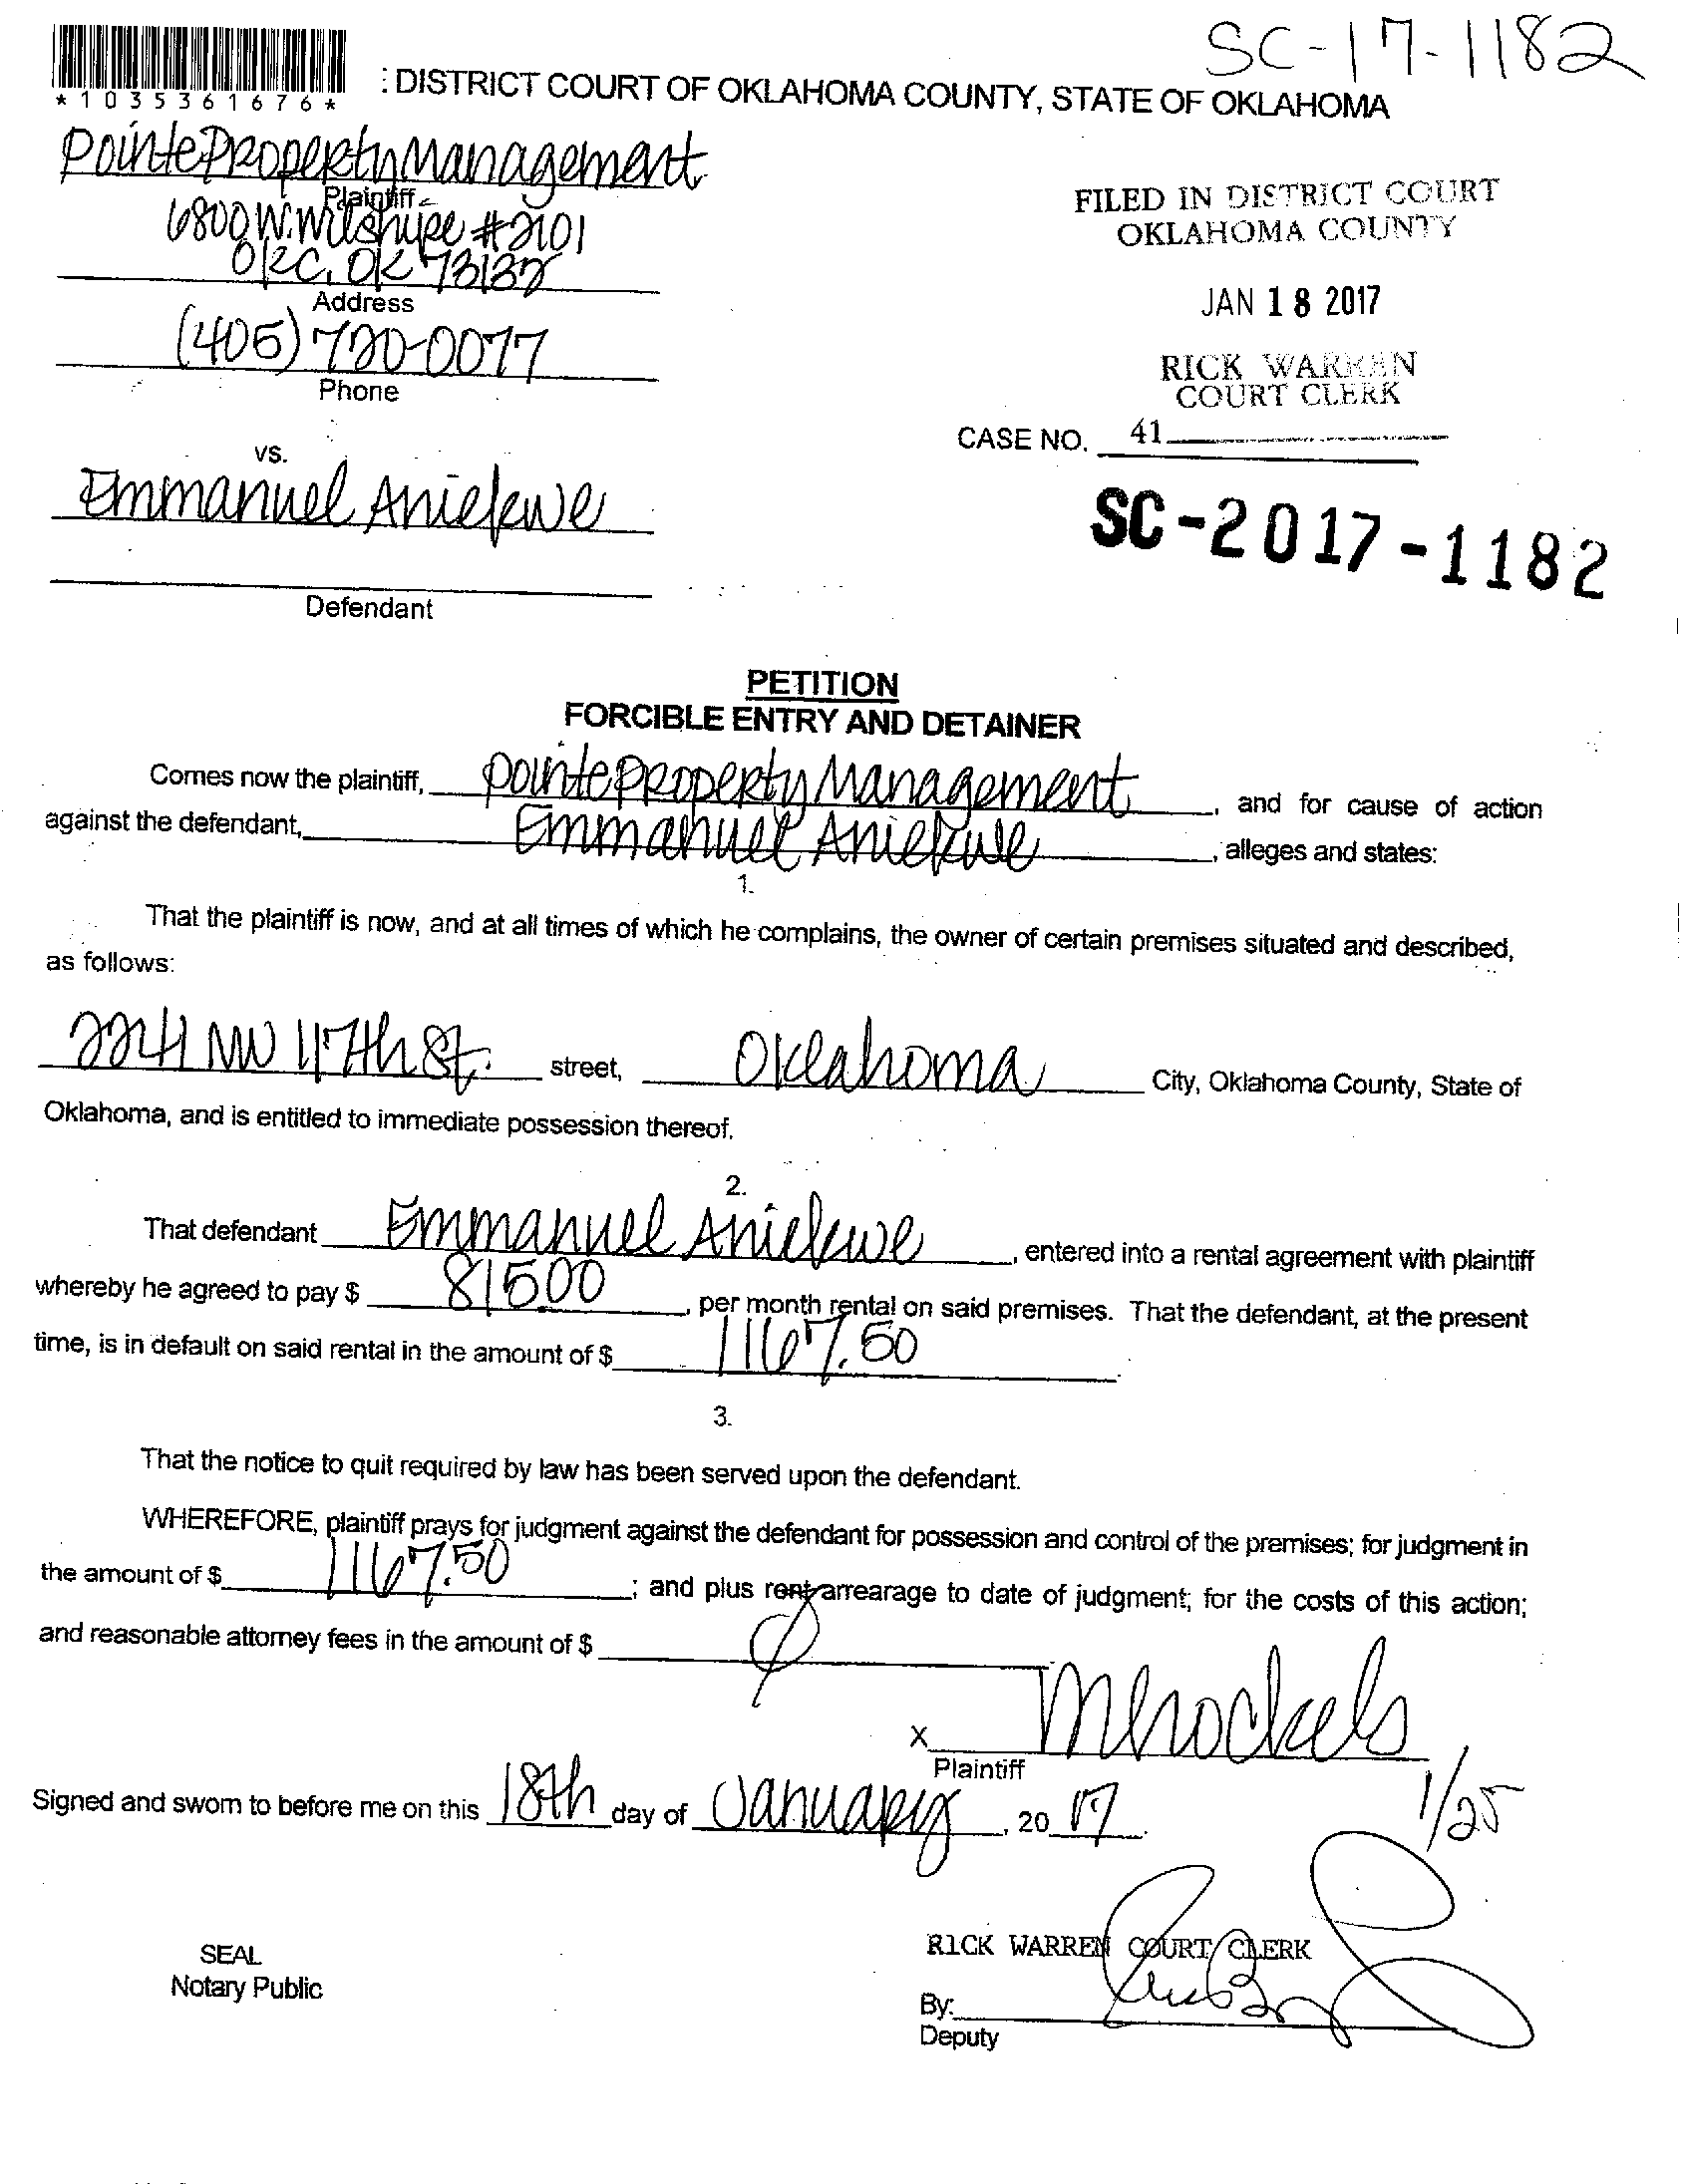 SC-17-1182
*1035361676*
: DISTRICT COURT OF OKLAHOMA COUNTY, STATE OF OKLAHOMA
Pointe Property Management
Plaintiff
6800 W. Wilshire #2101
OKC, OK 73132
Address
(405) 720-0077
Phone
FILED IN DISTRICT COURT
OKLAHOMA COUNTY
JAN 18 2017
RICK WARREN
COURT CLERK
CASE NO. 41
SC-2017-1182
vs.
Emmanuel Aniekwe
Defendant
PETITION
FORCIBLE ENTRY AND DETAINER
Comes now the plaintiff, Pointe Property Management, and for cause of action
against the defendant, Emmanuel Aniekwe, alleges and states:
1.
That the plaintiff is now, and at all times of which he complains, the owner of certain premises situated and described,
as follows:
2241 NW 117th St. street, Oklahoma City, Oklahoma County, State of
Oklahoma, and is entitled to immediate possession thereof.
2.
That defendant Emmanuel Aniekwe, entered into a rental agreement with plaintiff
whereby he agreed to pay $ 81500, per month rental on said premises. That the defendant, at the present
time, is in default on said rental in the amount of $ 1167.50.
3.
That the notice to quit required by law has been served upon the defendant.
WHEREFORE, plaintiff prays for judgment against the defendant for possession and control of the premises; for judgment in
the amount of $ 1167.50; and plus rent arrearage to date of judgment; for the costs of this action;
and reasonable attorney fees in the amount of $
X
Plaintiff
1/25
Signed and sworn to before me on this 18th day of January, 20 17.
SEAL
Notary Public
RICK WARREN COURT CLERK
By:
Deputy